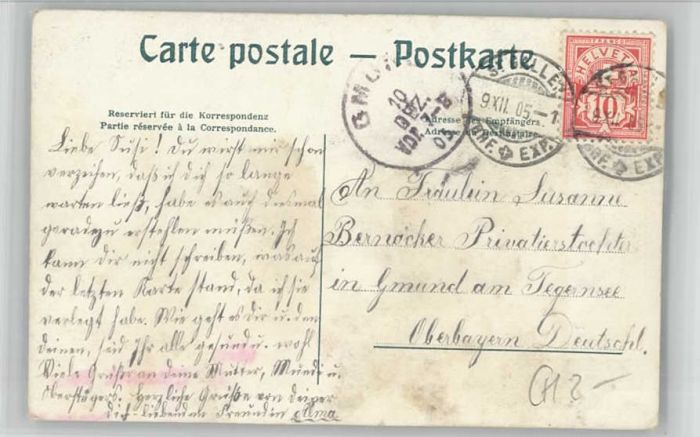 Carte postale — Postkarte
Reserviert für die Korrespondenz
Partie réservée à la Correspondance.
Adresse des Empfängers.
Adresse du Destinataire.
HELVETIA
FRANCO
10
9.XII.05-1
BRF. EXP.
GMUND
10
DEZ.
VOR. 7-8
05
Liebe Susi! Du wirst mir schon
verzeihen, daß ich dich so lange
warten ließ, habe es auch diesmal
geradezu erstehlen müßen. Ich
kann dir nicht schreiben, was auf
der letzten Karte stand, da ich sie
verlegt habe. Wie geht es dir u. den
deinen, seid Ihr alle gesund u. wohl
Viele Grüße an deine Mutter, u.
Herzliche Grüße von deiner
dich liebenden Freundin Alma
An Fräulein Susanne
Bernöcker Privatierstochter
in Gmund am Tegernsee
Oberbayern Deutschl.